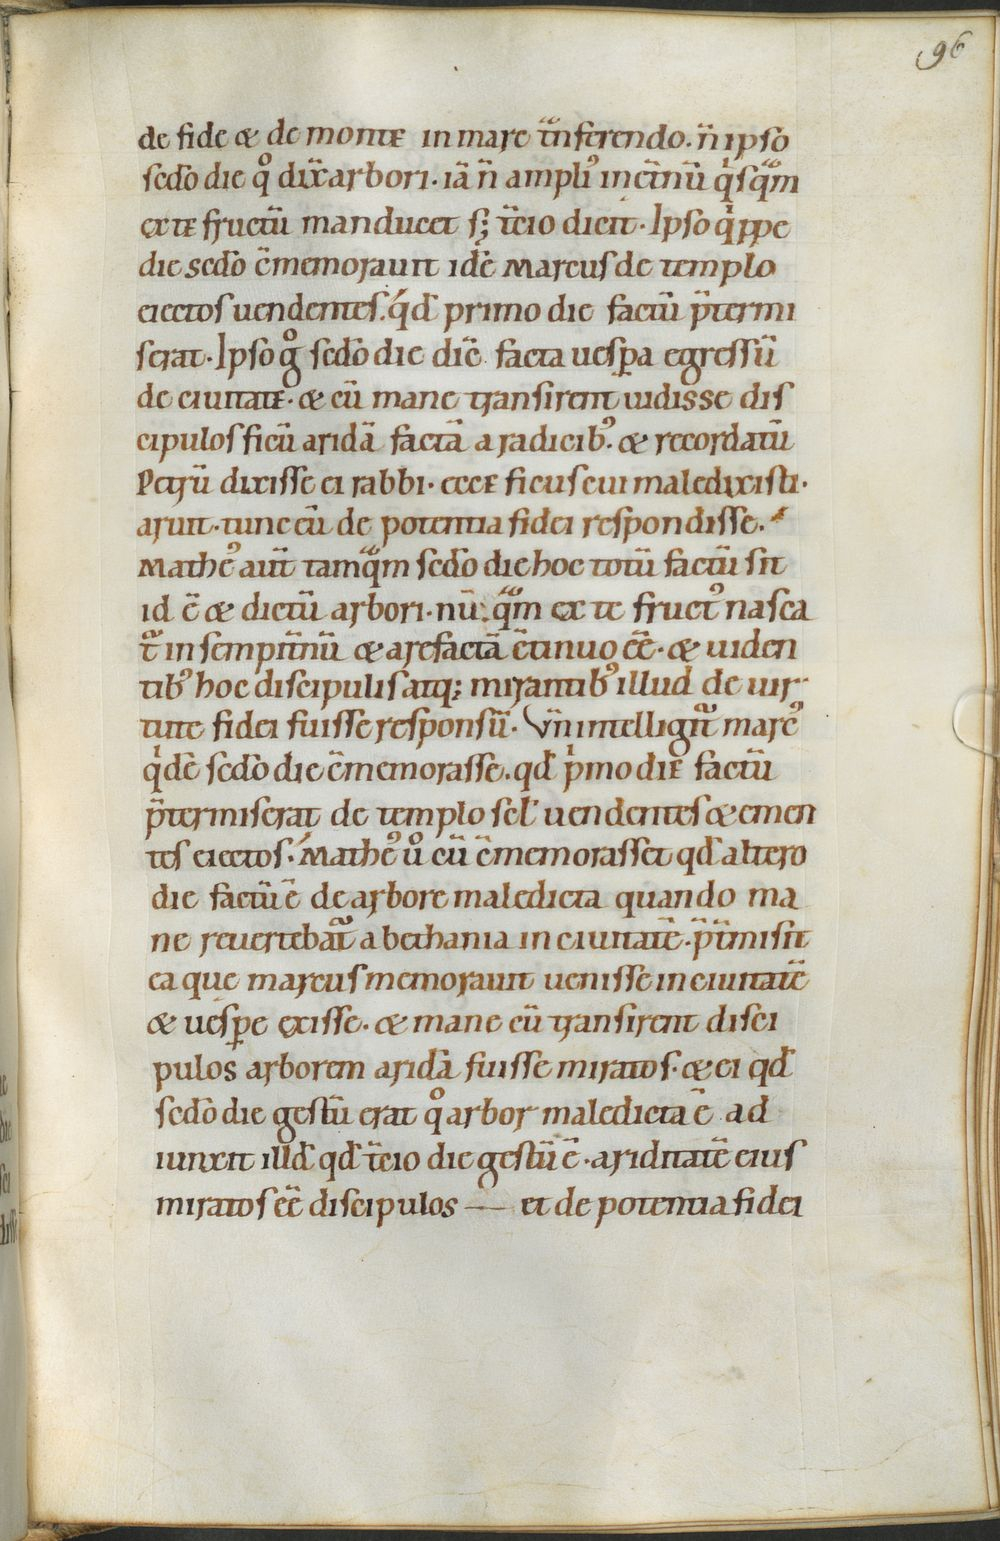 96
de fide & de monte in mare t̄nsferendo. n̄ ipso
sedo die qͦ dix̄ arbori. iā n̄ ampliꝰ in et̄nū qͥsqᷓm
ex te fructū manducet s; t̄cio dieit. Ipso qͥppe
die sedo c̄memorauit idē Marcus de templo
eiectos uendentes. qd̄ primo die factū p̄termi
serat. Ipso gͦ sedo die dic̄ facta uesꝑa egressū
de ciuitate. & cū mane transirent uidisse dis
cipulos ficū aridā factā a radicibꝰ. & recordatū
Petrū dixisse ei rabbi. ecce ficus cui maledixisti.
aruit. tunc eū de potentia fidei respondisse.
Matheꝰ aut̄ tamqᷓm sedo die hoc totū factū sit
id ē & dictū arbori. nū. qᷓm ex te fructꝰ nasca
tᷣ in sempit̄nū & arefactā c̄tinuo ēē. & uiden
tibꝰ hoc discipulis atq; mirantibꝰ illud de uir
tute fidei fuisse responsū. Vn̄ intelligitᷣ marcꝰ
qͥdē sedo die c̄memorasse. qd̄ pͥmo die factū
p̄termiserat de templo scl̄ uendentes & emen
tes eiectos. Matheꝰ uͦ cū c̄memorasset qd̄ altero
die factū ē de arbore maledicta quando ma
ne reuertebatᷣ a bethania in ciuitatē. p̄t̄misit
ea que marcus memorauit uenisse in ciuitatē
& uesꝑe exisse. & mane cū transirent disci
pulos arborem aridā fuisse miratos. & ei qd̄
sedo die gestū erat qͦ arbor maledicta ē ad
iunxit illd̄ qd̄ t̄cio die gestū ē. ariditatē eius
miratos ēē discipulos — et de potentia fidei